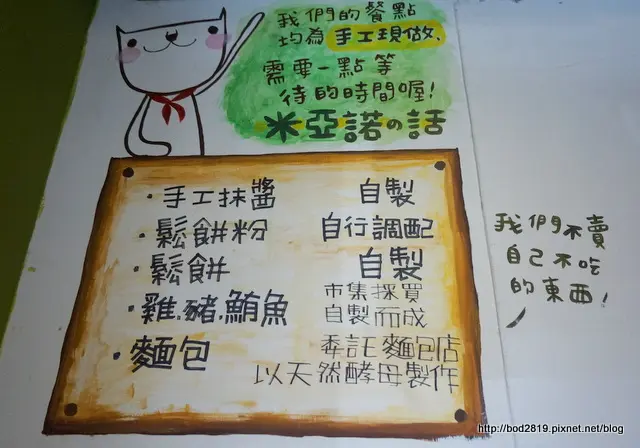 我們的餐點
均為手工現做,
需要一點等
待的時間喔!
米亞諾の話
・手工抹醬 自製
・鬆餅粉 自行調配
・鬆餅 自製
・雞.豬.鮪魚 市集採買
自製而成
・麵包 委託麵包店
以天然酵母製作
我們不賣
自己不吃
的東西!
http://bod2819.pixnet.net/blog